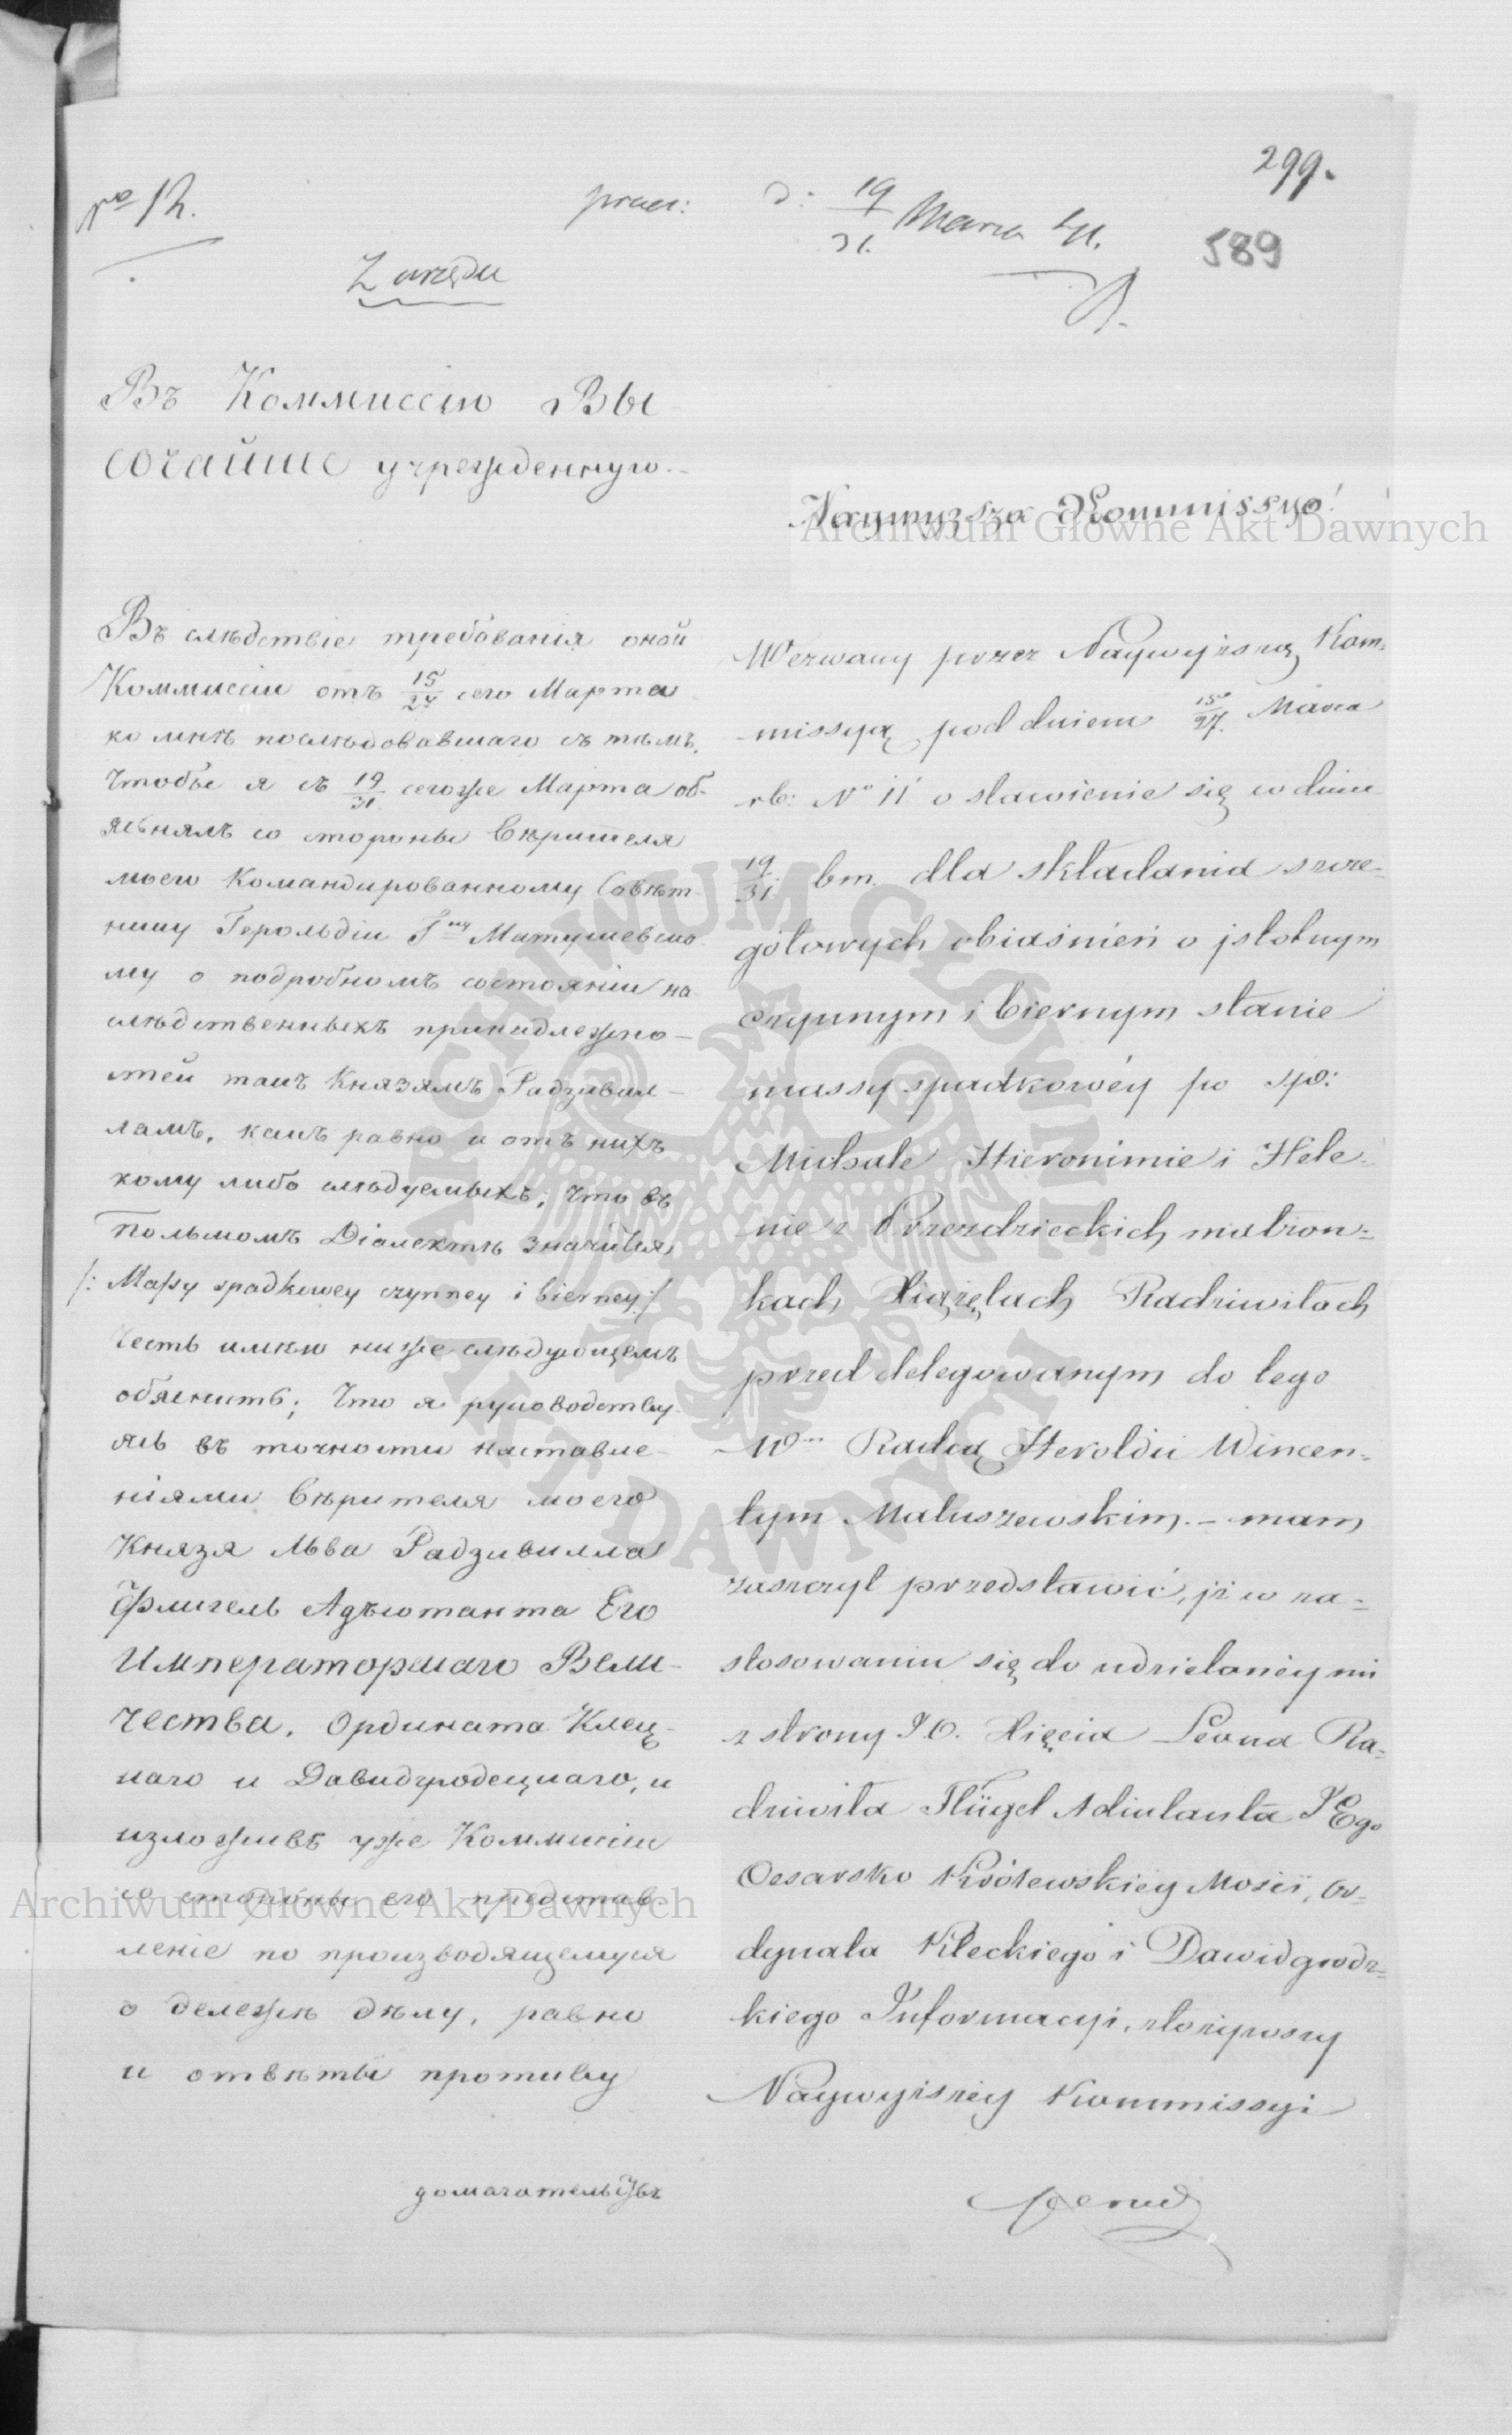 299.
No 12.
praes: d: 19/31. Marca 41.
589
Z urzędu
Въ Коммиссію Вы
сочайше учрежденную.
Въ слѣдствіе требованія оной
Коммиссіи отъ 15/27 сего Марта
ко мнѣ послѣдовавшаго съ тѣмъ,
чтобы я съ 19/31 сегоже Марта об-
яснялъ со стороны Вѣрителя
моего Командированному Совѣт-
нику Герольдіи Гну Матушевско-
му о подробномъ состояніи на-
слѣдственныхъ принадлежно-
стей такъ Князямъ Радзивил-
ламъ, какъ равно и отъ нихъ
кому либо слѣдуемыхъ, что въ
Польскомъ Діалектѣ значится
/: Massy spadkowey czynney i bierney :/
честь имѣю ниже слѣдующемъ
обяснить; Что я руководству-
ясь въ точности наставле-
ніями Вѣрителя моего
Князя Льва Радзивилла
Флигель Адъютанта Его
Императорскаго Вели-
чества, Ордината Клец-
каго и Давидгродецкаго, и
изложивъ уже Коммиссіи
со стороны его представ-
леніе по производящемуся
о дележѣ дѣлу, равно
и отвѣты противу
домагательствъ
Naywyzsza Kommissyo!
Wezwany przez Naywyższą Kom-
missyą pod dniem 15/27. Marca
rb: No 11 o stawienie się w dniu
19/31 bm. dla składania szcze-
gółowych obiaśnień o jstotnym
czynnym i biernym stanie
massy spadkowéy po sp:
Michale Hieronimie i Hele-
nie z Przezdzieckich małżon-
kach Xiążętach Radziwiłach
przed delegowanym do tego
Wm Radcą Heroldii Wincen-
tym Matuszewskim. – mam
zaszczyt przedstawić, jż w za-
stosowaniu się do udzielonéy mi
z strony J.O. Xięcia Leona Ra-
dziwiła Flügel Adiutanta JEgo
Cesarsko Królewskiéy Mości, Or-
dynata Kleckiego i Dawidgrodz-
kiego Informacyi, złożywszy
Naywyższéy Kommissyi
Archiwum Główne Akt Dawnych
Archiwum Główne Akt Dawnych
ARCHIWUM GŁÓWNE AKT DAWNYCH